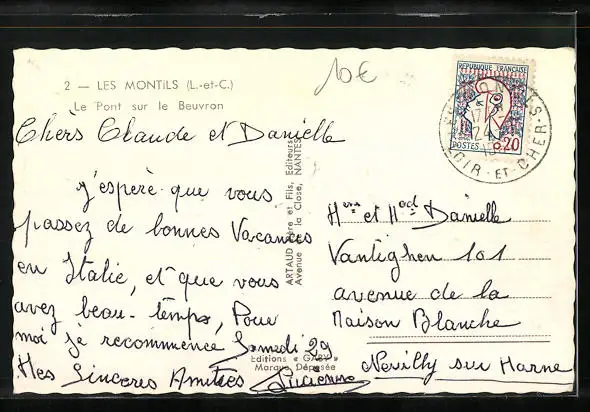 2 — LES MONTILS (L.-et-C.)
Le Pont sur le Beuvron
10€
REPUBLIQUE FRANÇAISE
POSTES 0,20
LOIR-ET-CHER
Chèrs Claude et Danielle
j'espère que vous
passez de bonnes Vacances
en Italie, et que vous
avez beau-temps, Pour
moi je recommence Samedi 29
Mes Sincères Amitiées Lucienne
ARTAUD Père et Fils, Editeurs
Avenue de la Close, NANTES
Editions « GABY »
Marque Déposée
et Danielle
Vantighen 101
avenue de la
Maison Blanche
Nevilly sur Marne